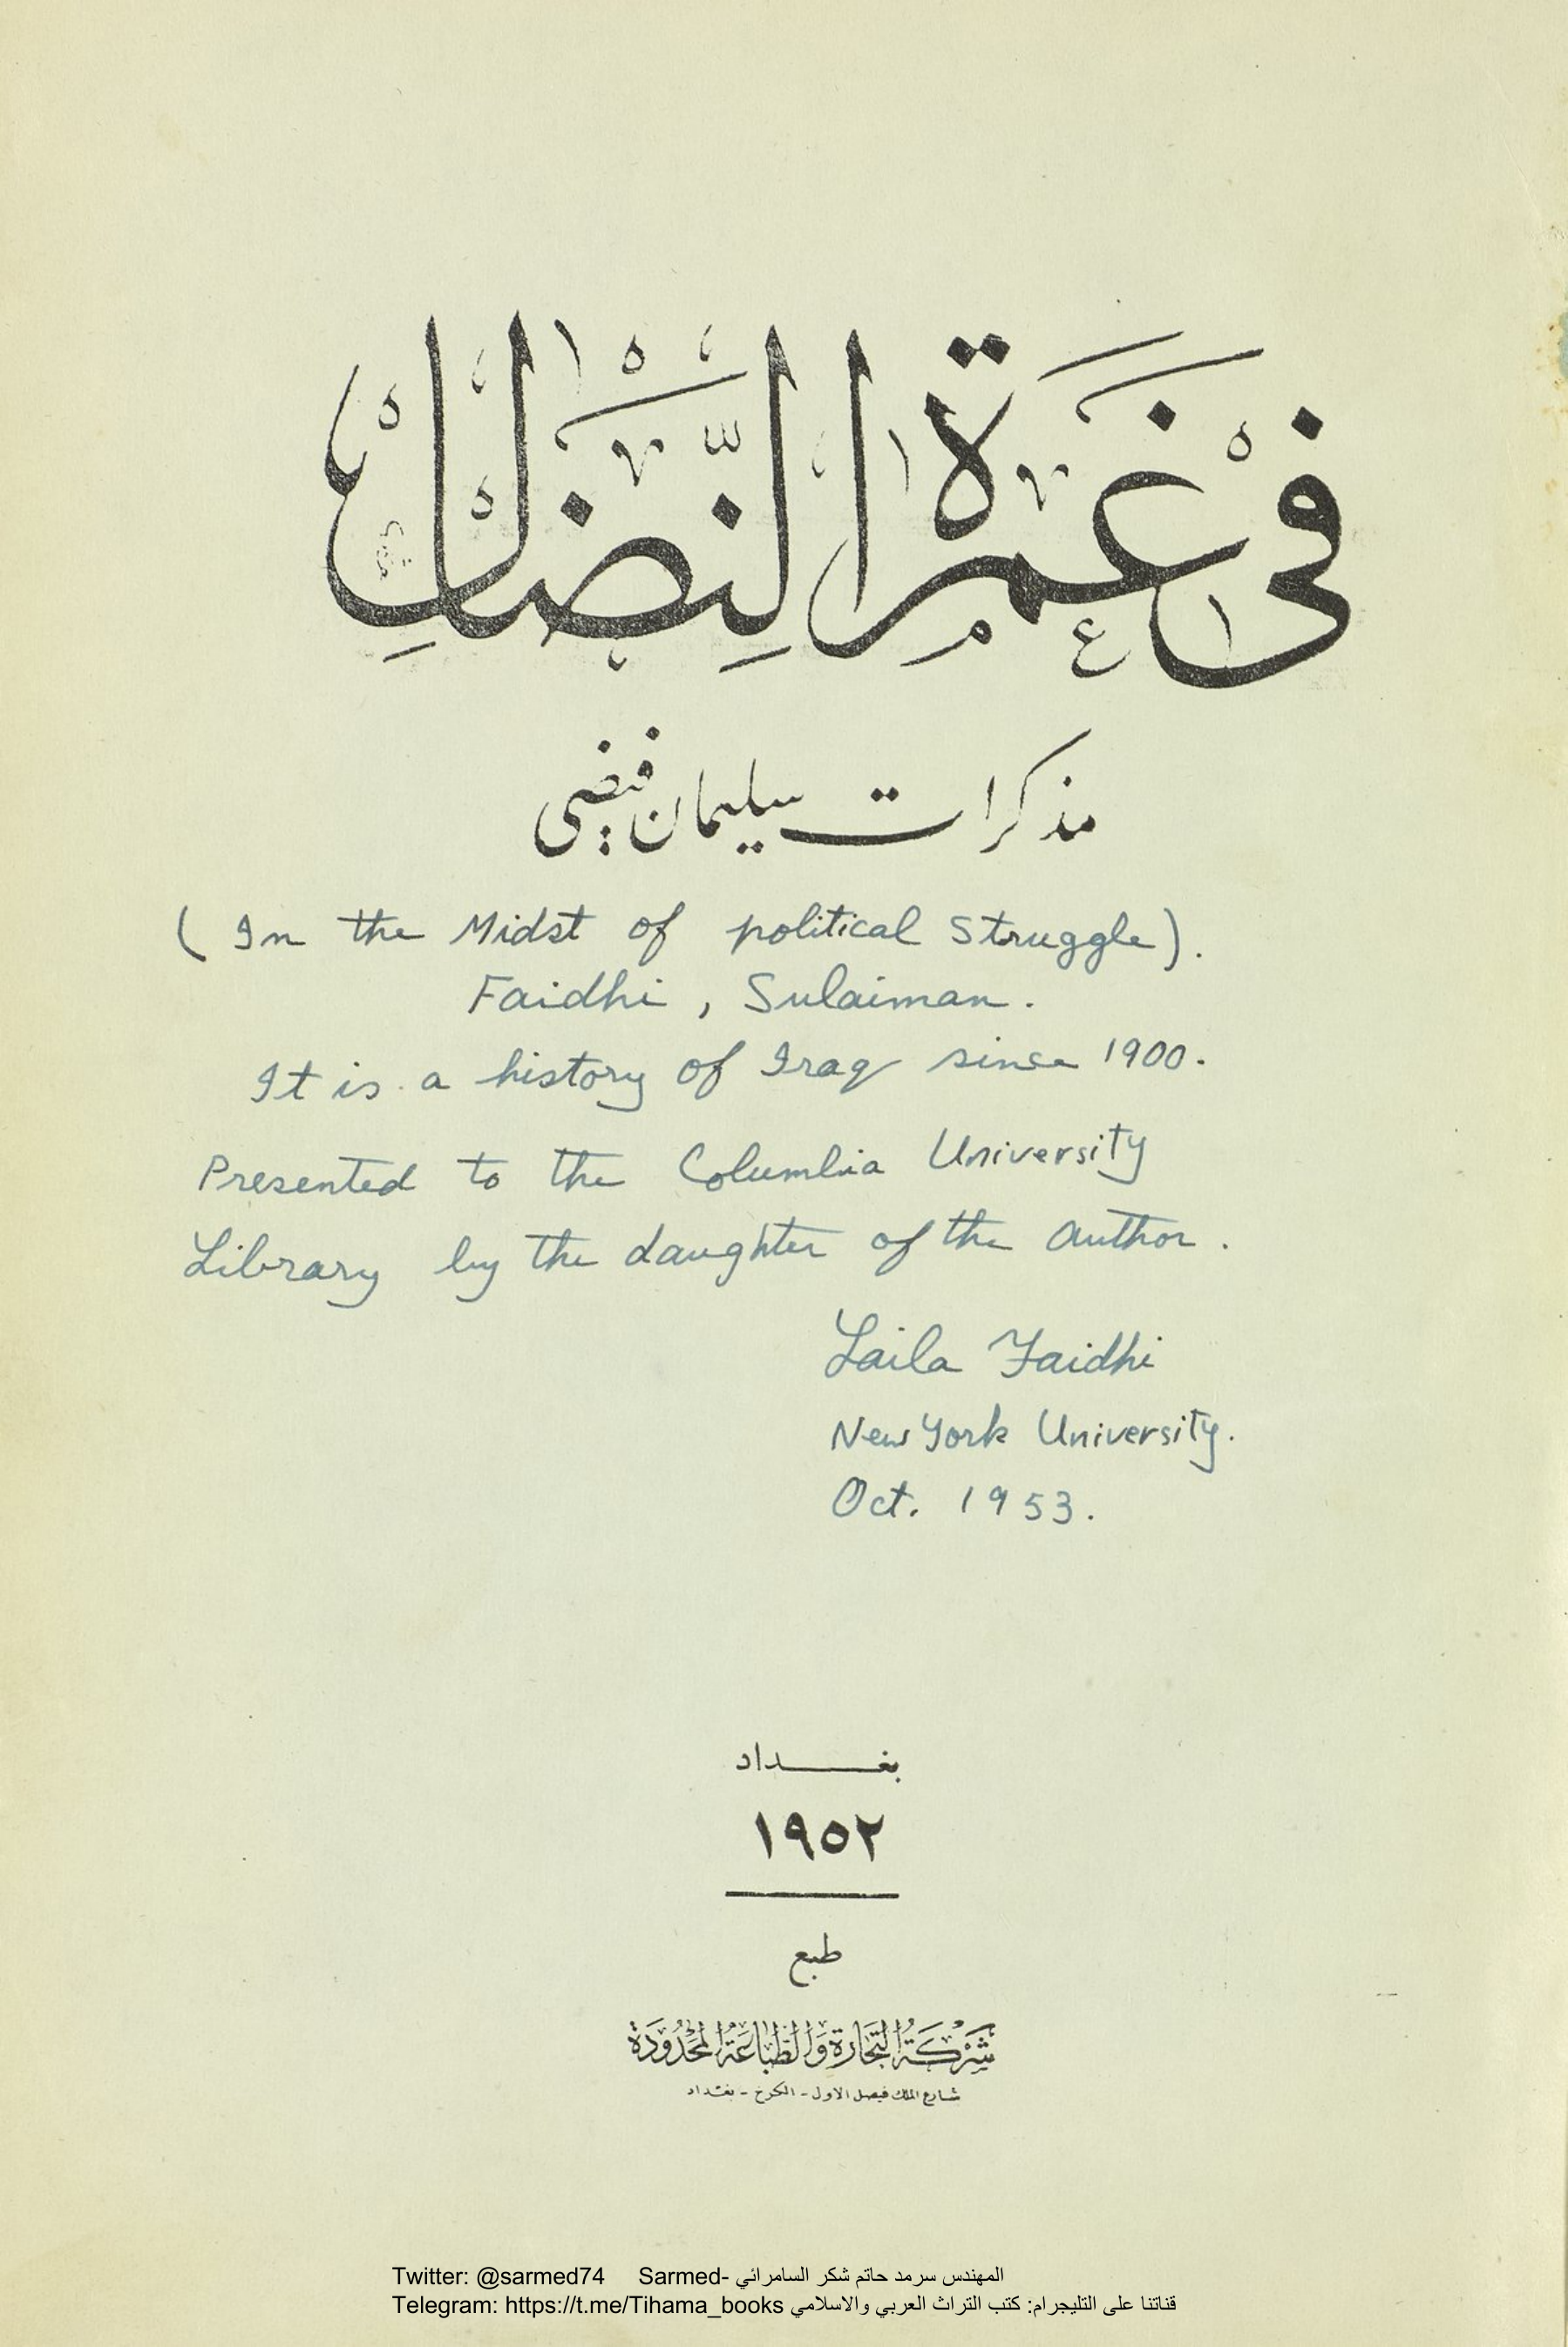 في غمرة النضال
مذكرات سليمان فيضي
( In the Midst of political Struggle ).
Faidhi , Sulaiman .
It is a history of Iraq since 1900.
Presented to the Columbia University
Library by the daughter of the author .
Laila Faidhi
New York University.
Oct. 1953.
بغداد
١٩٥٢
طبع
شركة التجارة والطباعة المحدودة
شارع الملك فيصل الاول - الكرخ - بغداد
Twitter: @sarmed74 Sarmed- المهندس سرمد حاتم شكر السامرائي
Telegram: https://t.me/Tihama_books قناتنا على التليجرام: كتب التراث العربي والاسلامي